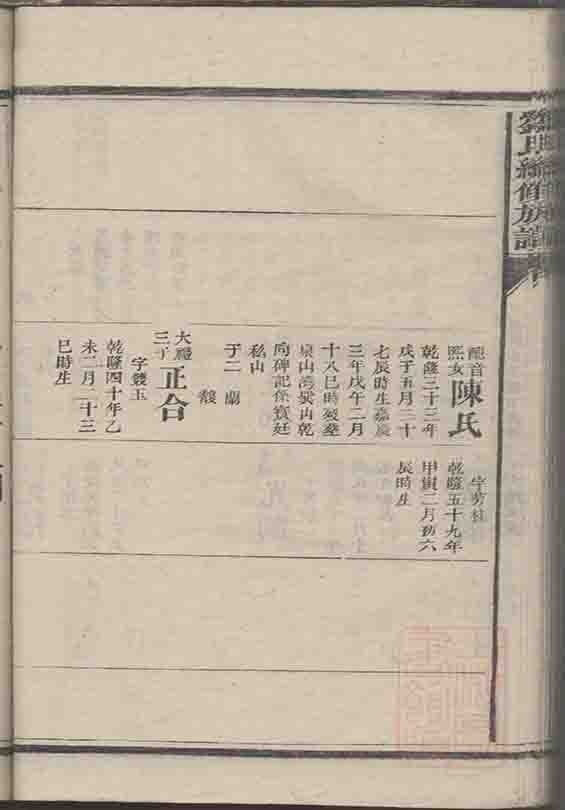 氏續修族譜
配音
熙女
陳氏
乾隆三十三年
戊子五月三十
七辰時生嘉慶
三年戊午二月
十八巳時歿葬
泉山灣癸山乾
向碑記係寶廷
私山
子二 蘭
馥
大穩
三子
正合
字雙玉
乾隆四十年乙
未二月二十三
巳時生
字芳桂
乾隆五十九年
甲寅二月初六
辰時生